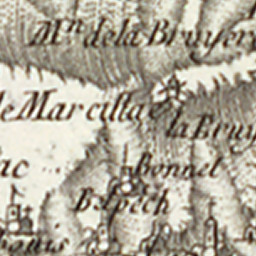 Mⁿ de la Bruyer
le Marcillac
la Bruy
ac
Bonnet
Belpech
Louis